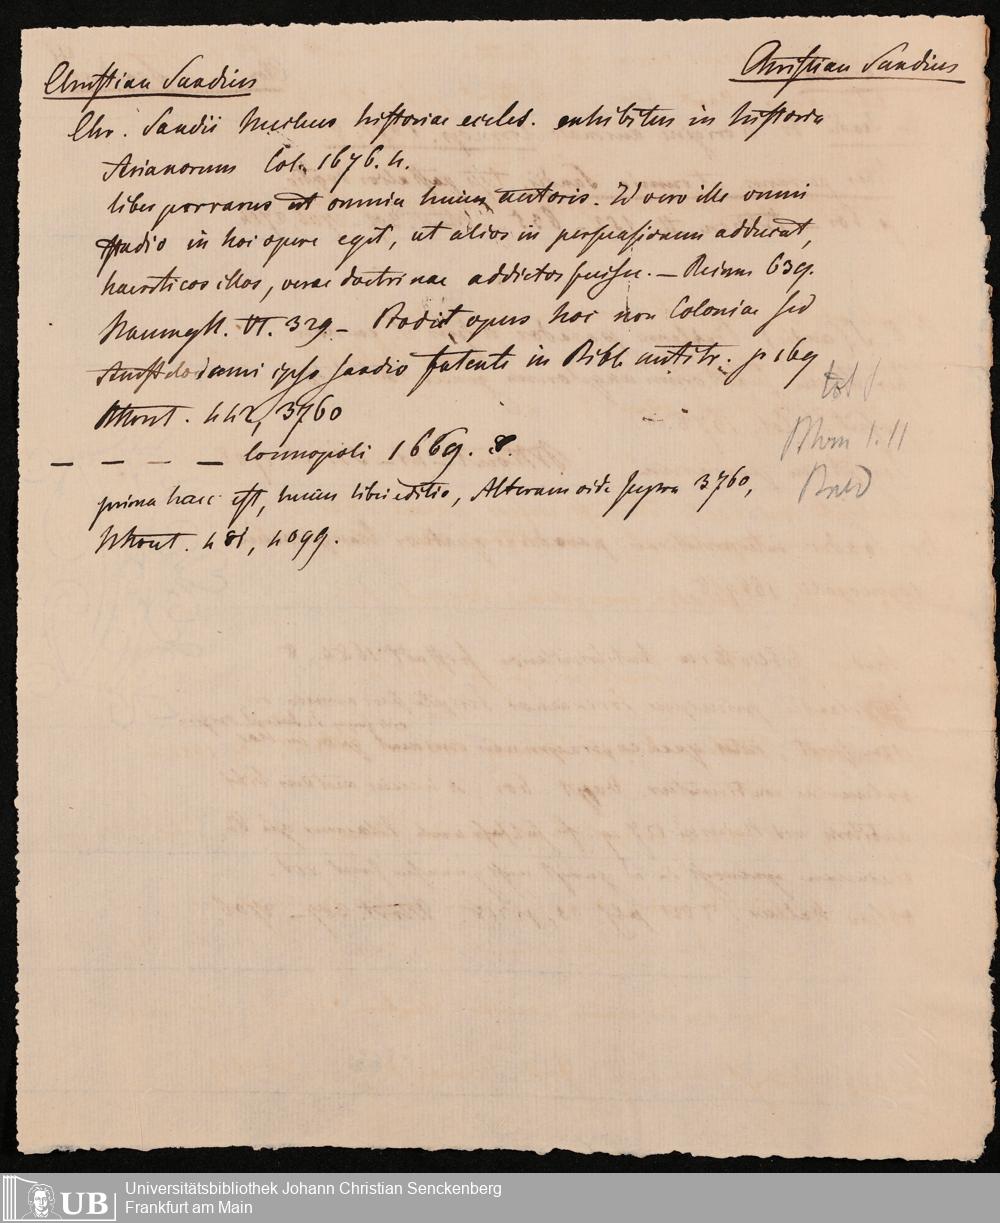 Christian Sandius
Christian Sandius
Chr. Sandii Nucleus historiae eccles. exhibitus in historia
Arianorum Col. 1676. 4.
liber perrarus ut omnia huius autoris. Id vero ille omni
studio in hoc opere egit, ut alios in persuasionem adducat,
haereticos illos, verae doctrinae addictos fuisse. — Reimm 639.
VI. 329 — Prodiit opus hoc non Coloniae sed
Amstelodami ipso Sandio fatente in Bibl. antitr. p 169
442, 3760
— — — — Cosmopoli 1669. 8.
prima haec est, huius libri editio, Alteram vide supra 3760,
481, 4099.
Universitätsbibliothek Johann Christian Senckenberg
UB Frankfurt am Main